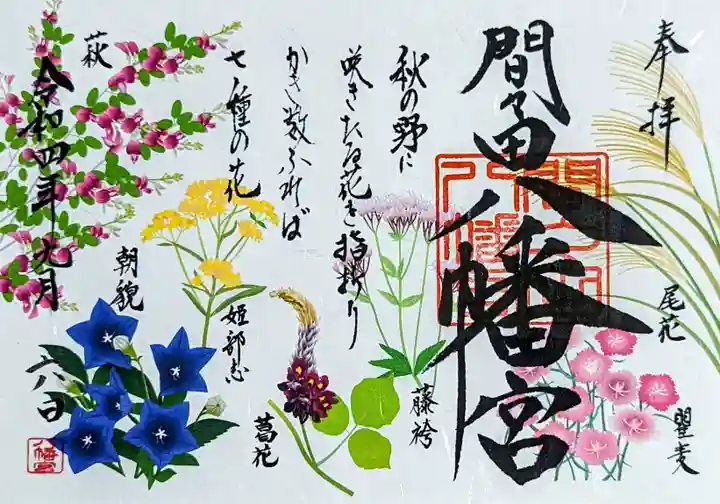 奉拝
間々田八幡宮
秋の野に
咲きたる花を指折り
かき数ふれば
七ノ種の花
萩
令和四年九月
六日
尾花
瞿麦
藤袴
葛花
姫部志
朝貌
八幡宮